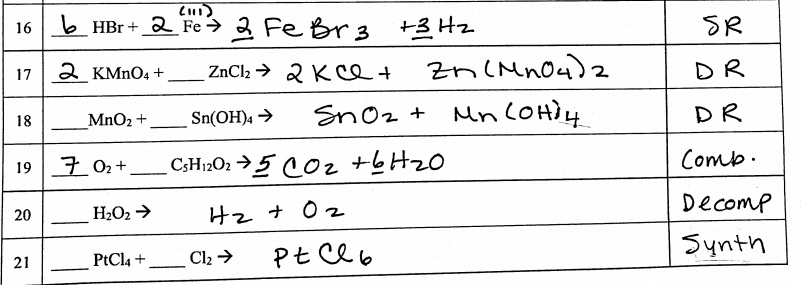 16 6 HBr + 2 Fe (III) → 2 FeBr3 + 3 H2 SR
17 2 KMnO4 + ___ ZnCl2 → 2 KCl + Zn(MnO4)2 DR
18 ___ MnO2 + ___ Sn(OH)4 → SnO2 + Mn(OH)4 DR
19 7 O2 + ___ C5H12O2 → 5 CO2 + 6 H2O Comb.
20 ___ H2O2 → H2 + O2 Decomp
21 ___ PtCl4 + ___ Cl2 → PtCl6 Synth